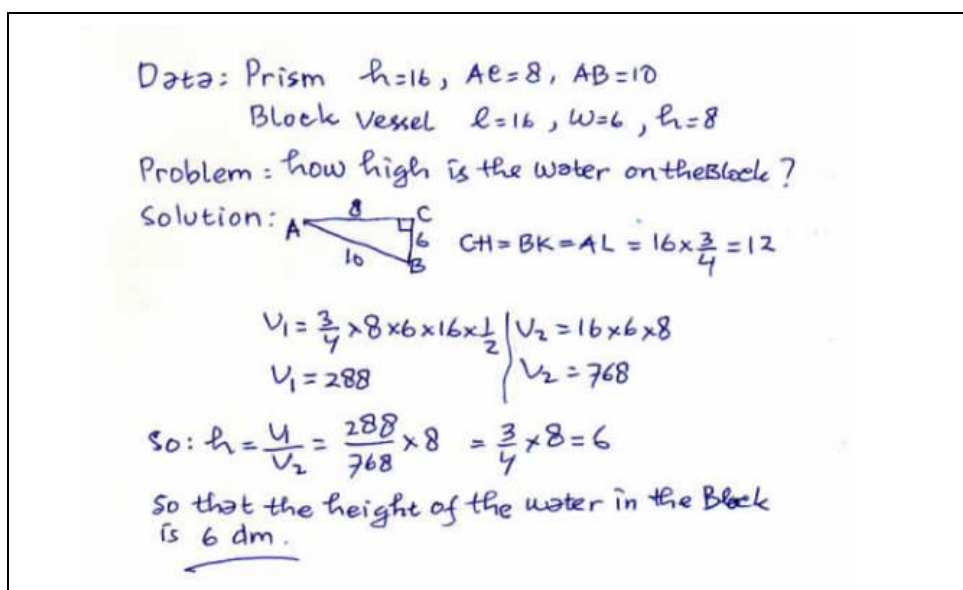 Data: Prism h=16, AC=8, AB=10
Block Vessel l=16, w=6, h=8
Problem: how high is the water on the Block?
Solution: A 8 C 6 10 B CH = BK = AL = 16 x 3/4 = 12
V1 = 3/4 x 8 x 6 x 16 x 1/2 | V2 = 16 x 6 x 8
V1 = 288 | V2 = 768
So: h = V1/V2 = 288/768 x 8 = 3/4 x 8 = 6
So that the height of the water in the Block
is 6 dm.